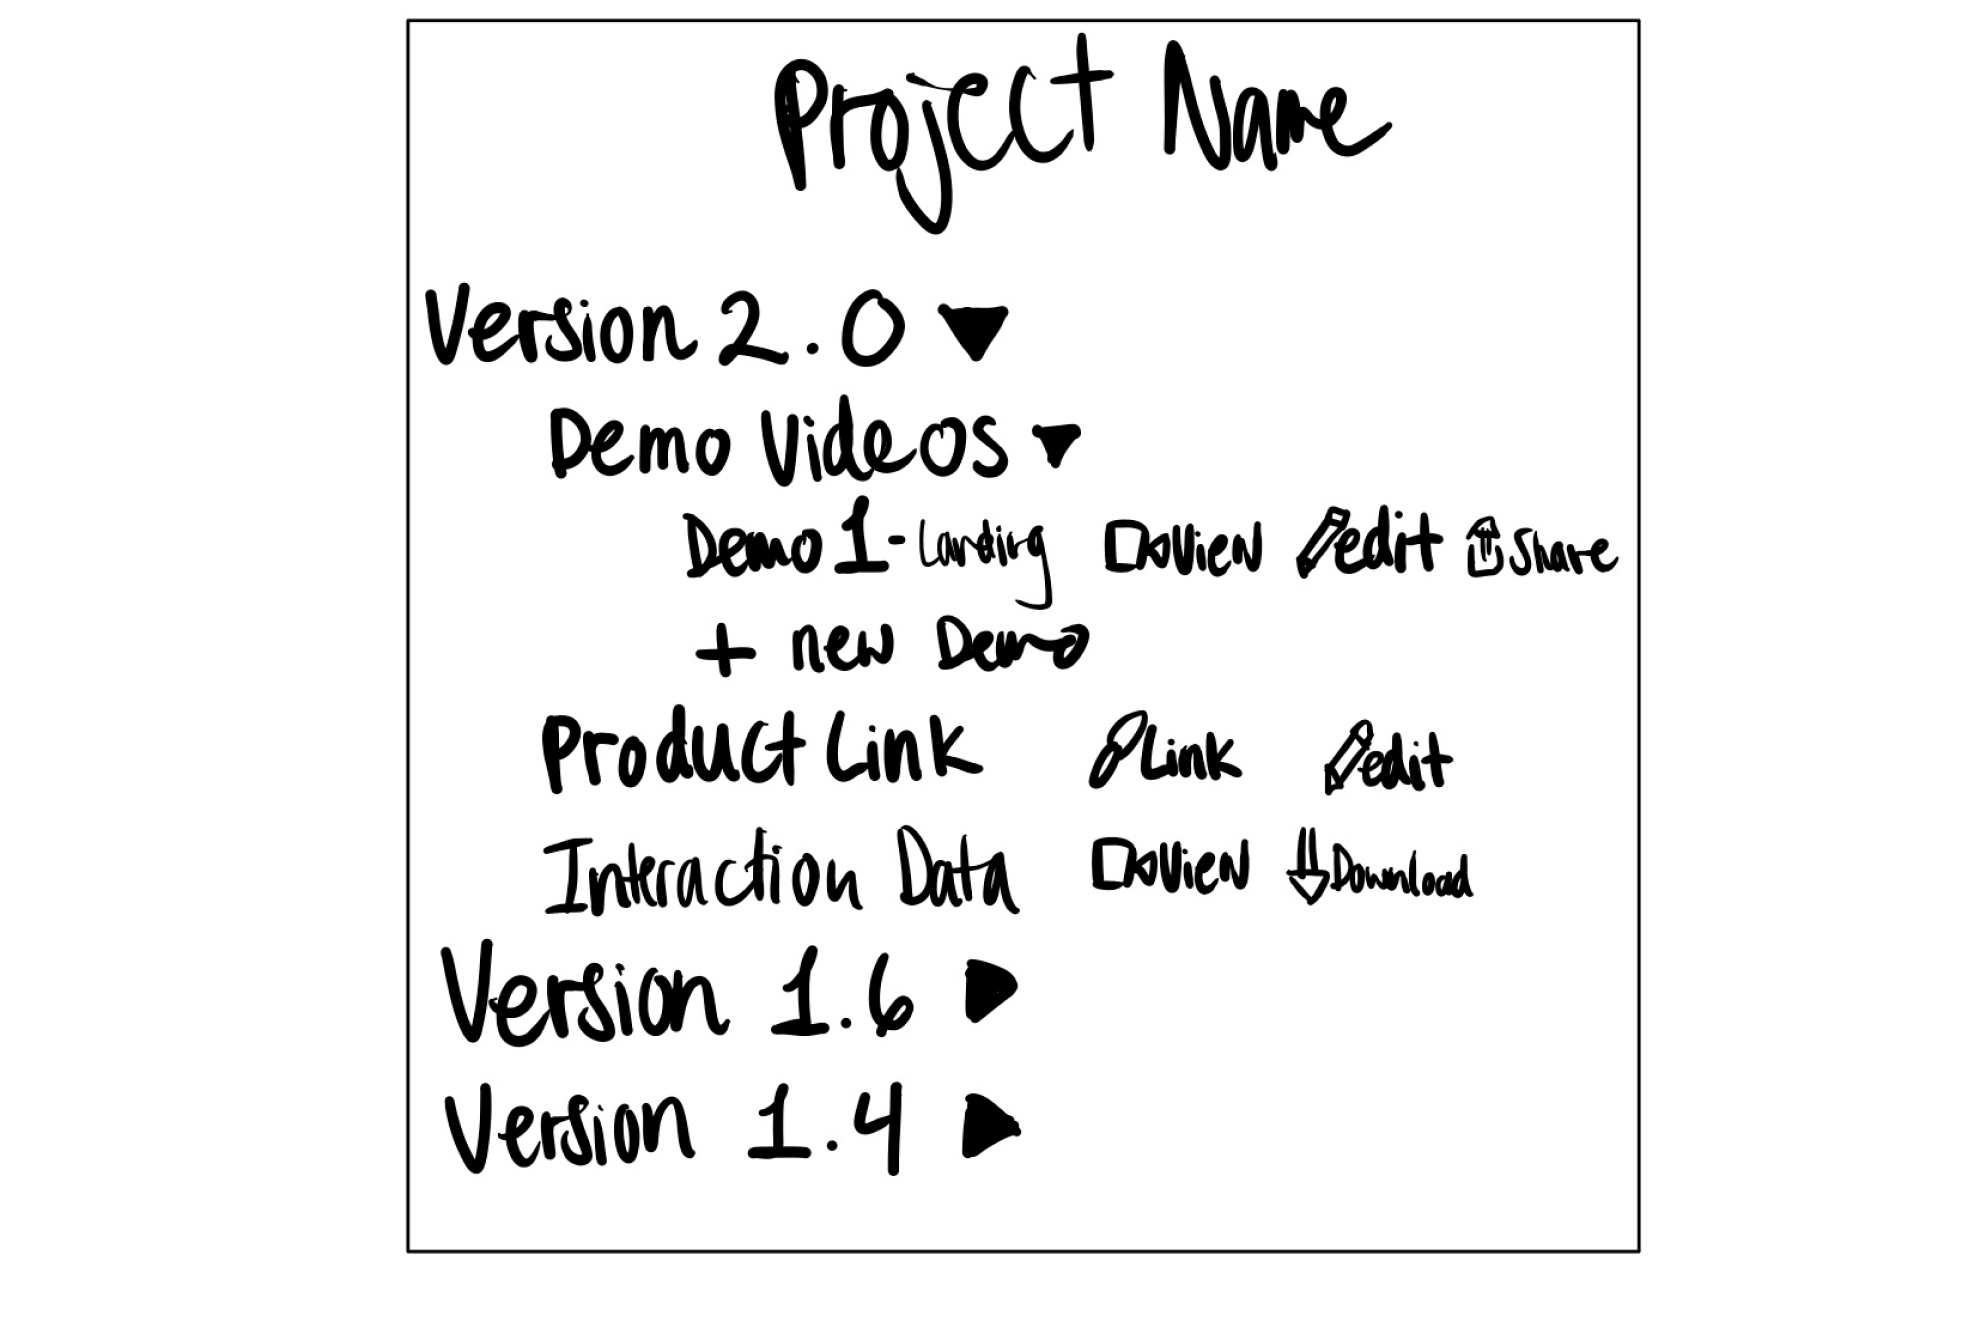 Project Name
Version 2.0
Demo Videos
Demo 1 - Landing View edit Share
+ new Demo
Product Link Link edit
Interaction Data View Download
Version 1.6
Version 1.4